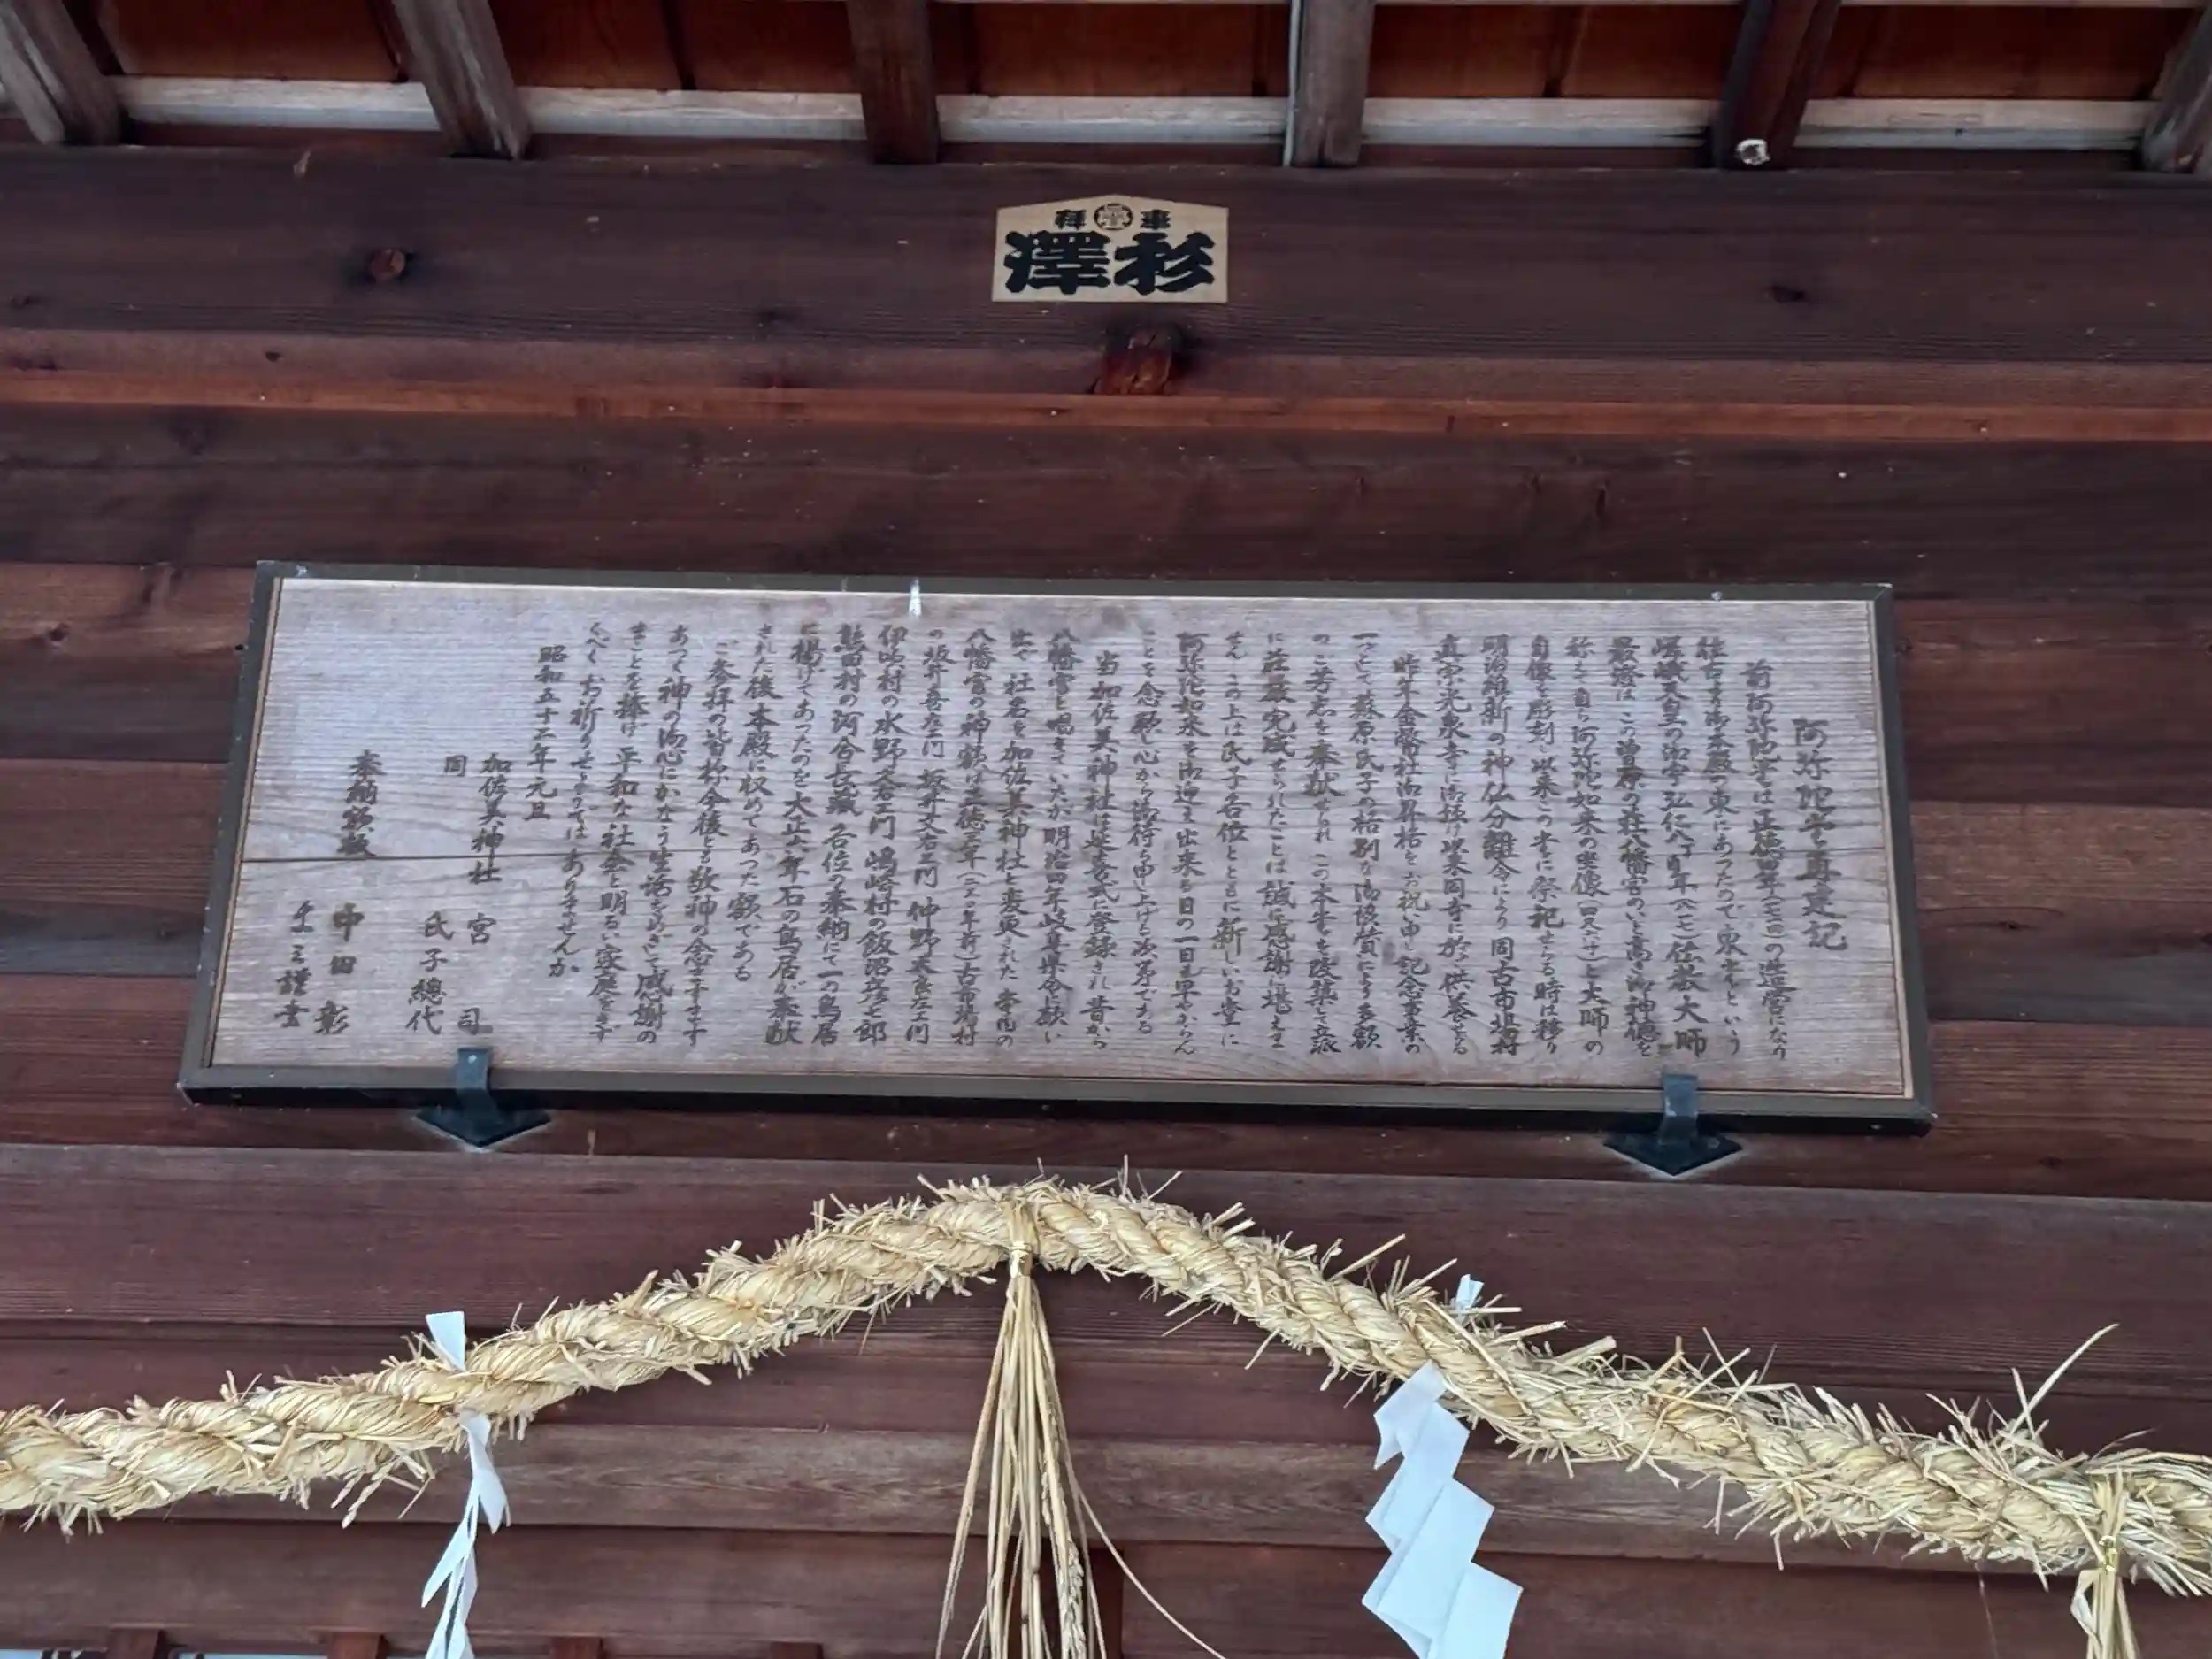 奉 材
杉澤
阿弥陀堂再建記
前阿弥陀堂は正徳四年(一七一四)の造営になり
往古より御本殿の東にあったので東堂という
嵯峨天皇の御宇弘仁八丁酉年(八一七)伝教大師
最澄はこの曽原の荘八幡宮のいと高き御神徳を
称えて自ら阿弥陀如来の坐像 と大師の
自像を彫刻し以来この堂に祭祀せらる時は移り
明治維新の神仏分離令により同古市場村
真宗光泉寺に御預け以来同寺に於て供養せらる
昨年金幣社御昇格をお祝い申し記念事業の
一つとして蘇原氏子の格別な御協賛により多額
のご芳志を奉献せられこの本堂を改築して立派
に荘厳完成せられたことは誠に感謝に堪えま
せんこの上は氏子各位とともに新しいお堂に
阿弥陀如来を御迎え出来る日の一日も早からん
ことを念願し心から御待ち申し上げる次第である
当加佐美神社は延喜式に登録され昔から
八幡宮と唱えていたが明治四年岐阜県令に依い
出て社名を加佐美神社と変更された 本殿の
八幡宮の神額は正徳 年( 年前)古市場村
の坂井喜左エ門 坂井文右エ門 仲野太郎左エ門
伊吹村の水野又右エ門 嶋崎村の飯沼彦七郎
熊田村の河合長蔵 各位の奉納にて一の鳥居
に揚げてあったのを大正六年石の鳥居が奉献
された後本殿に収めてあった額である
ご参拝の皆様今後とも敬神の念をますます
あつく神の御心にかなう生活をめざして感謝の
まことを捧げ平和な社会と明るい家庭をきず
くべくお祈りせようではありませんか
昭和五十二年元旦
加佐美神社 宮司
同 氏子總代
奉納 中田 彰
謹書